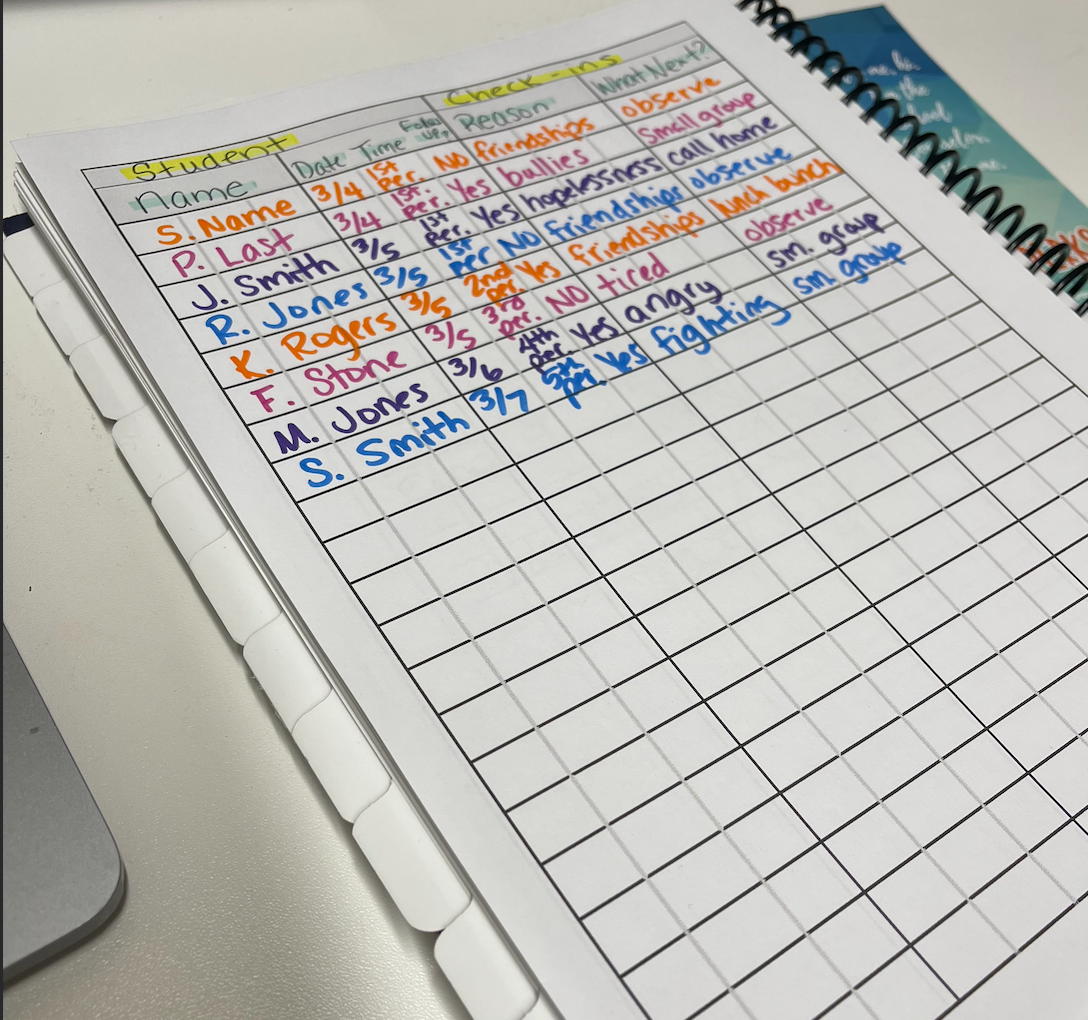 Student Check-ins
Name Date Time Follow up? Reason What Next?
S. Name 3/4 1st per. NO friendships observe
P. Last 3/4 1st. per. Yes bullies Small group
J. Smith 3/5 1st per. Yes hopelessness call home
R. Jones 3/5 1st per NO friendships observe
K. Rogers 3/5 2nd per. Yes friendships lunch bunch
F. Stone 3/5 3rd per. NO tired observe
M. Jones 3/6 4th per. Yes angry sm. group
S. Smith 3/7 5th per. Yes fighting sm. group
the